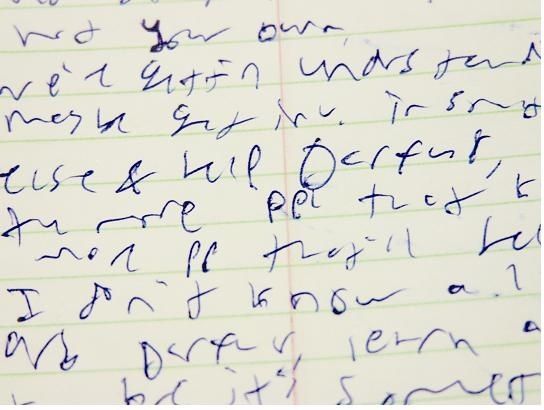 not your own
gettin undrstand
maybe get inv. in smt
else & help Darfur,
the more ppl that k
mor pp that'll hel
I don't know a.l
Darfur, learn a
it's somet